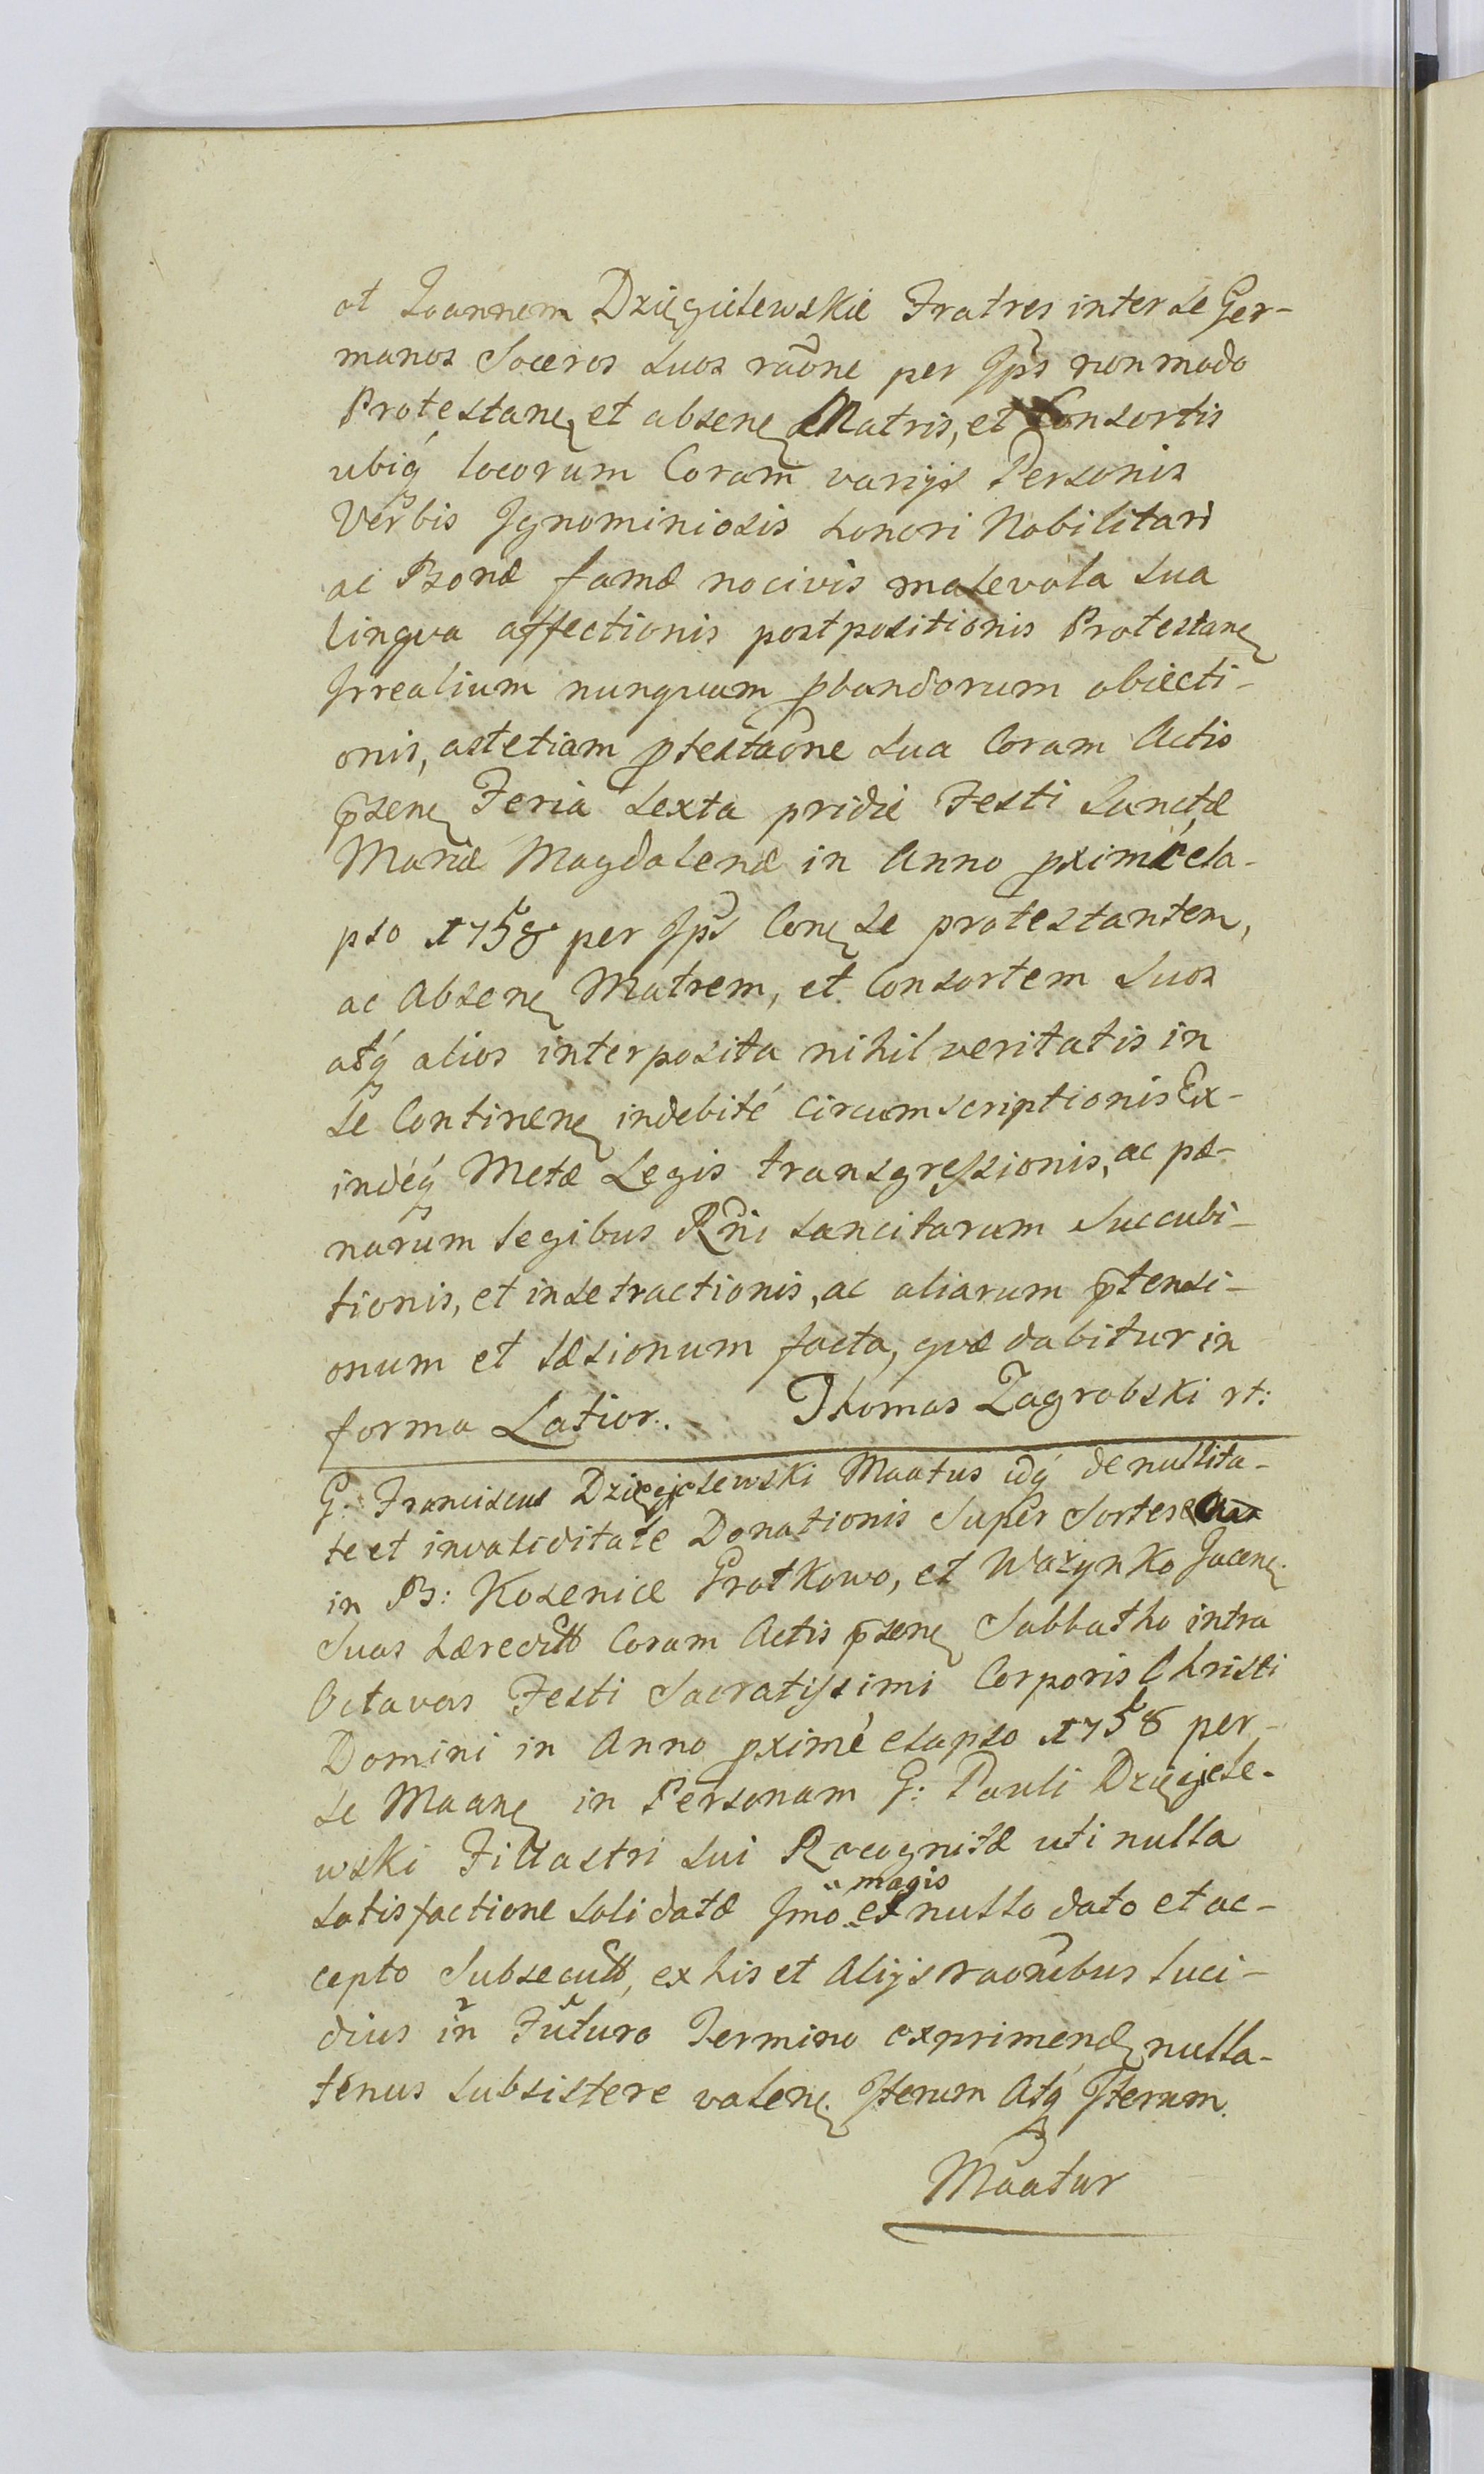 et Joannem Dzięgielewskie Fratres inter se Ger-
manos Soceros suos raõne per Ips non modo
Protestanę et absenę Matris, et Consortis
ubiq́ locorum Coram varijs Personis
Verbis Ignominiosis honori Nobilitari
ac Bonæ famæ nocivis malevola sua
lingva affectionis postpositionis Protestanę
Irrealium nunquam pbandorum obiecti-
onis, ast etiam ptestaõne sua Coram Actis
p̄senę Feria sexta pridie Festi Sanctæ
Mariæ Magdalenæ in Anno pximè ela-
pso 1758 per Ips Conę se protestantem,
ac Absenę Matrem, et Consortem Suos
atq́ alios interposita nihil veritatis in
se Continenę indebitè circumscriptionis Ex-
indéq́ Metæ Legis transgressionis, ac pæ-
narum legibus Rñi sancitarum Succubi-
tionis, et in se tractionis, ac aliarum p̄tensi-
onum et læsionum facta, qvæ dabitur in
forma Latior. Thomas Zagrobski rt:
G: Franciscus Dzięgielewski Maatus idq́ de nullita-
te et invaliditate Donationis Super Sortes
in B: Kosenice Grotkowo, et Ważynko Jacenę
Suas hæreditt Coram Actis p̄senę Sabbatho intra
Octavas Festi Sacratissimi Corporis Christi
Domini in Anno pximè elapso 1758 per
se Maanę in Personam G: Pauli Dzięgiele-
wski Filiastri sui Recognitæ uti nulla
magis
satisfactione solidatæ Imo et nullo dato et ac-
cepto Subsecutt, ex his et Alijs raõnibus luci-
dius iñ Futuro Termino exprimendę nulla-
tenus subsistere valenę. Iterum Atq́ Iterum.
Maatur